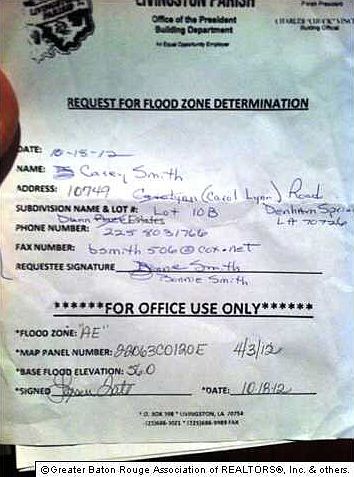 LIVINGSTON PARISH
Office of the President
Building Department
An Equal Opportunity Employer
Parish President
CHARLES "CHUCK" VINCENT
Building Official
REQUEST FOR FLOOD ZONE DETERMINATION
DATE: 10-18-12
NAME: Casey Smith
ADDRESS: 10749 Carolynn (Carol Lynn) Road
SUBDIVISION NAME & LOT #: Lot 10B Denham Springs
Dunn Place Estates LA 70726
PHONE NUMBER: 225 8031766
FAX NUMBER: bsmith506@cox.net
REQUESTEE SIGNATURE Smith
Bonnie Smith
******FOR OFFICE USE ONLY******
*FLOOD ZONE: "AE"
*MAP PANEL NUMBER: 22063C0120E 4/3/12
*BASE FLOOD ELEVATION: 56.0
*SIGNED *DATE: 10.18.12
* P.O. BOX 798 * LIVINGSTON, LA 70754
©Greater Baton Rouge Association of REALTORS®, Inc. & others.